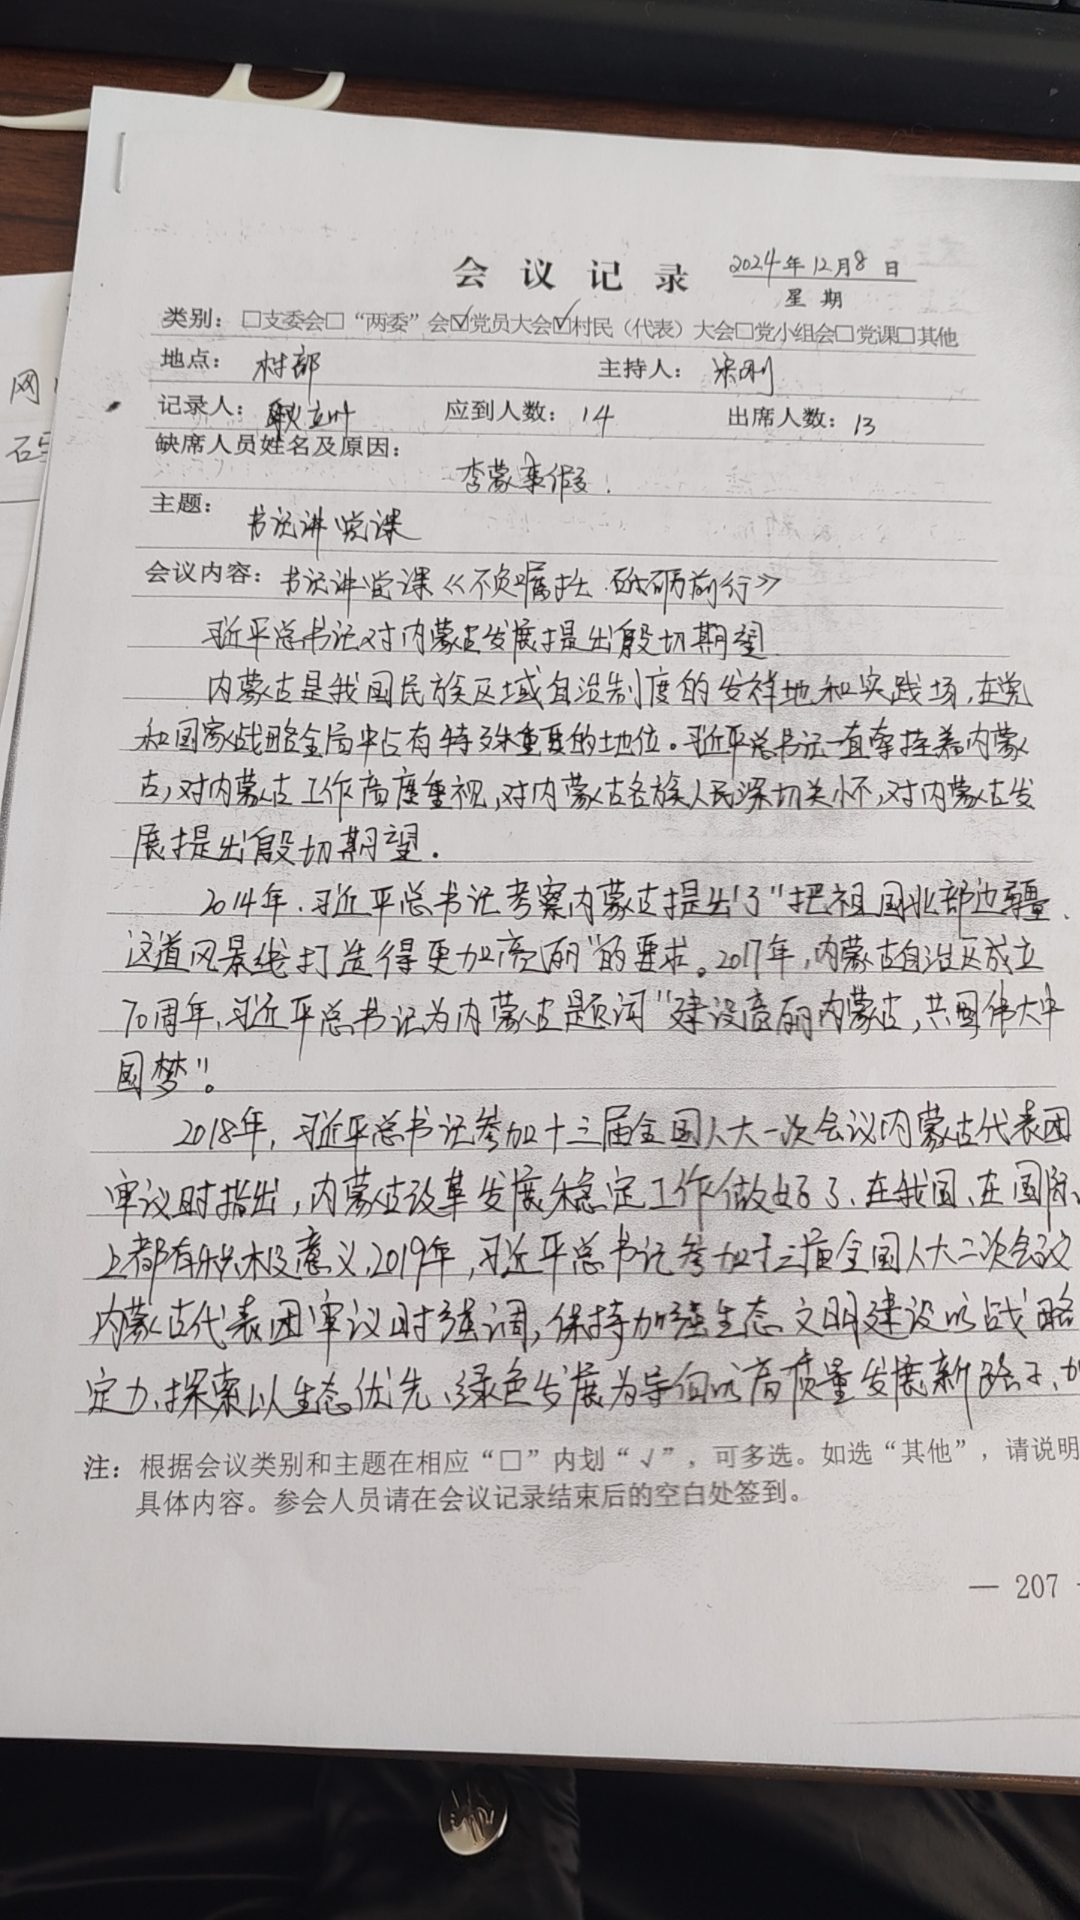 会议记录
2024年12月8日
星期
类别：□支委会□“两委”会☑党员大会☑村民（代表）大会□党小组会□党课□其他
地点：村部 主持人：宋刚
记录人：耿立叶 应到人数：14 出席人数：13
缺席人员姓名及原因：
李蒙事假.
主题：书记讲党课
会议内容：书记讲党课《不负嘱托 砥砺前行》
习近平总书记对内蒙古发展提出殷切期望
内蒙古是我国民族区域自治制度的发祥地和实践场，在党
和国家战略全局中占有特殊重要的地位。习近平总书记一直牵挂着内蒙
古，对内蒙古工作高度重视，对内蒙古各族人民深切关怀，对内蒙古发
展提出殷切期望.
2014年.习近平总书记考察内蒙古提出了“把祖国北部边疆
这道风景线打造得更加亮丽”的要求。2017年，内蒙古自治区成立
70周年，习近平总书记为内蒙古题词“建设亮丽内蒙古，共圆伟大中
国梦”。
2018年，习近平总书记参加十三届全国人大一次会议内蒙古代表团
审议时指出，内蒙古改革发展稳定工作做好了、在我国、在国际
上都有积极意义，2019年，习近平总书记参加十三届全国人大二次会议
内蒙古代表团审议时强调，保持加强生态文明建设的战略
定力、探索以生态优先、绿色发展为导向的高质量发展新路子、加
注：根据会议类别和主题在相应“□”内划“√”，可多选。如选“其他”，请说明
具体内容。参会人员请在会议记录结束后的空白处签到。
— 207
网